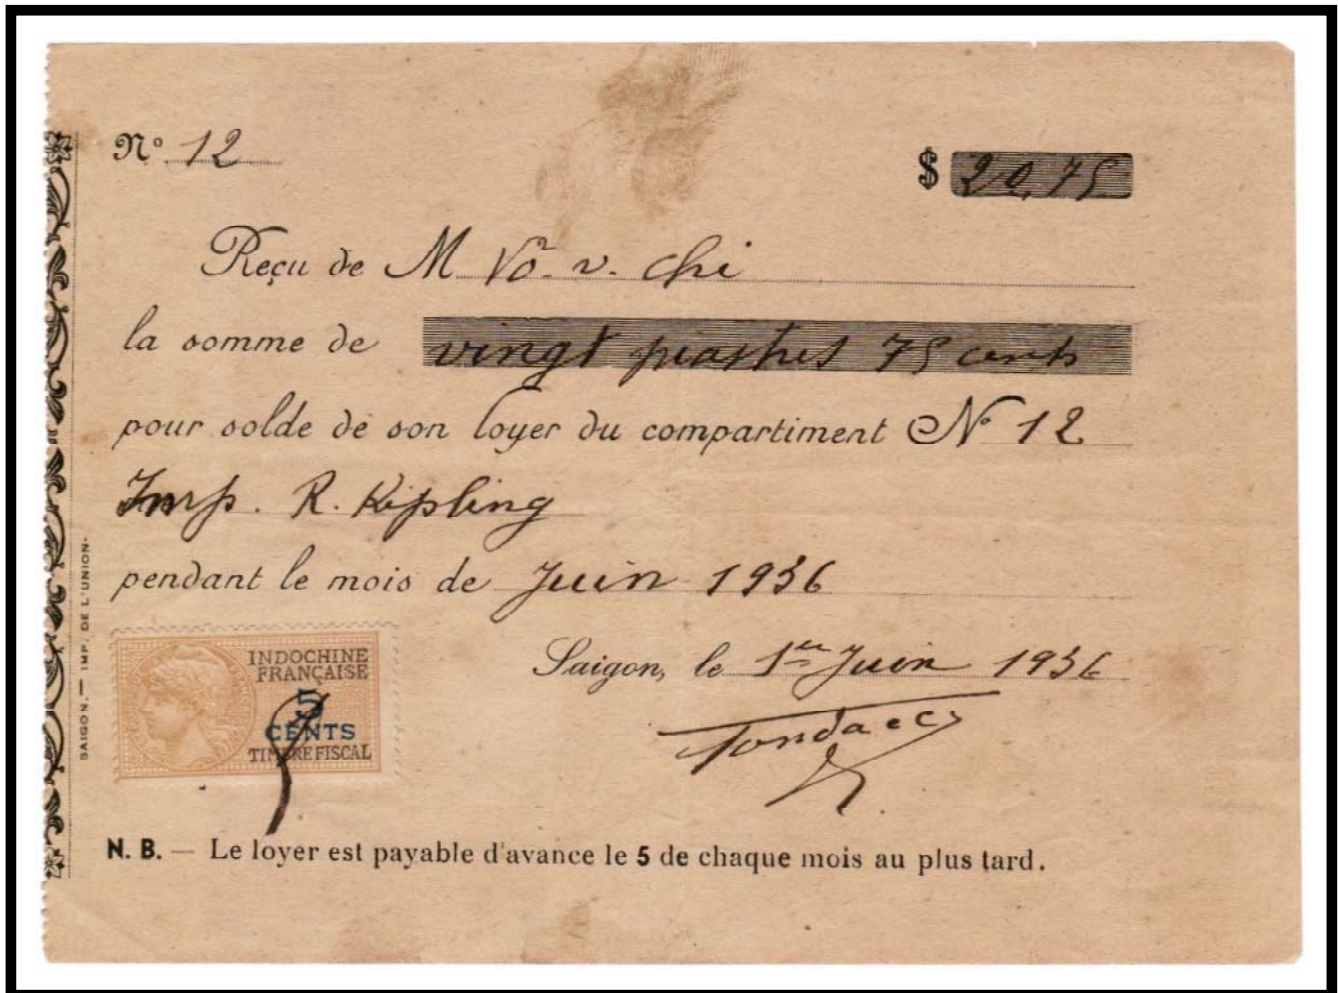 Nº 12
$ 20,75
Reçu de M Võ. v. Chi
la somme de vingt piastres 75 cents
pour solde de son loyer du compartiment N 12
Imp. R. Kipling
pendant le mois de Juin 1936
Saigon, le 1er Juin 1936
INDOCHINE
FRANÇAISE
5
CENTS
TIMBRE FISCAL
N. B. — Le loyer est payable d'avance le 5 de chaque mois au plus tard.
SAIGON. — IMP. DE L'UNION.